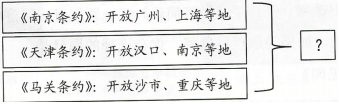 《南京条约》：开放广州、上海等地
《天津条约》：开放汉口、南京等地
《马关条约》：开放沙市、重庆等地
？